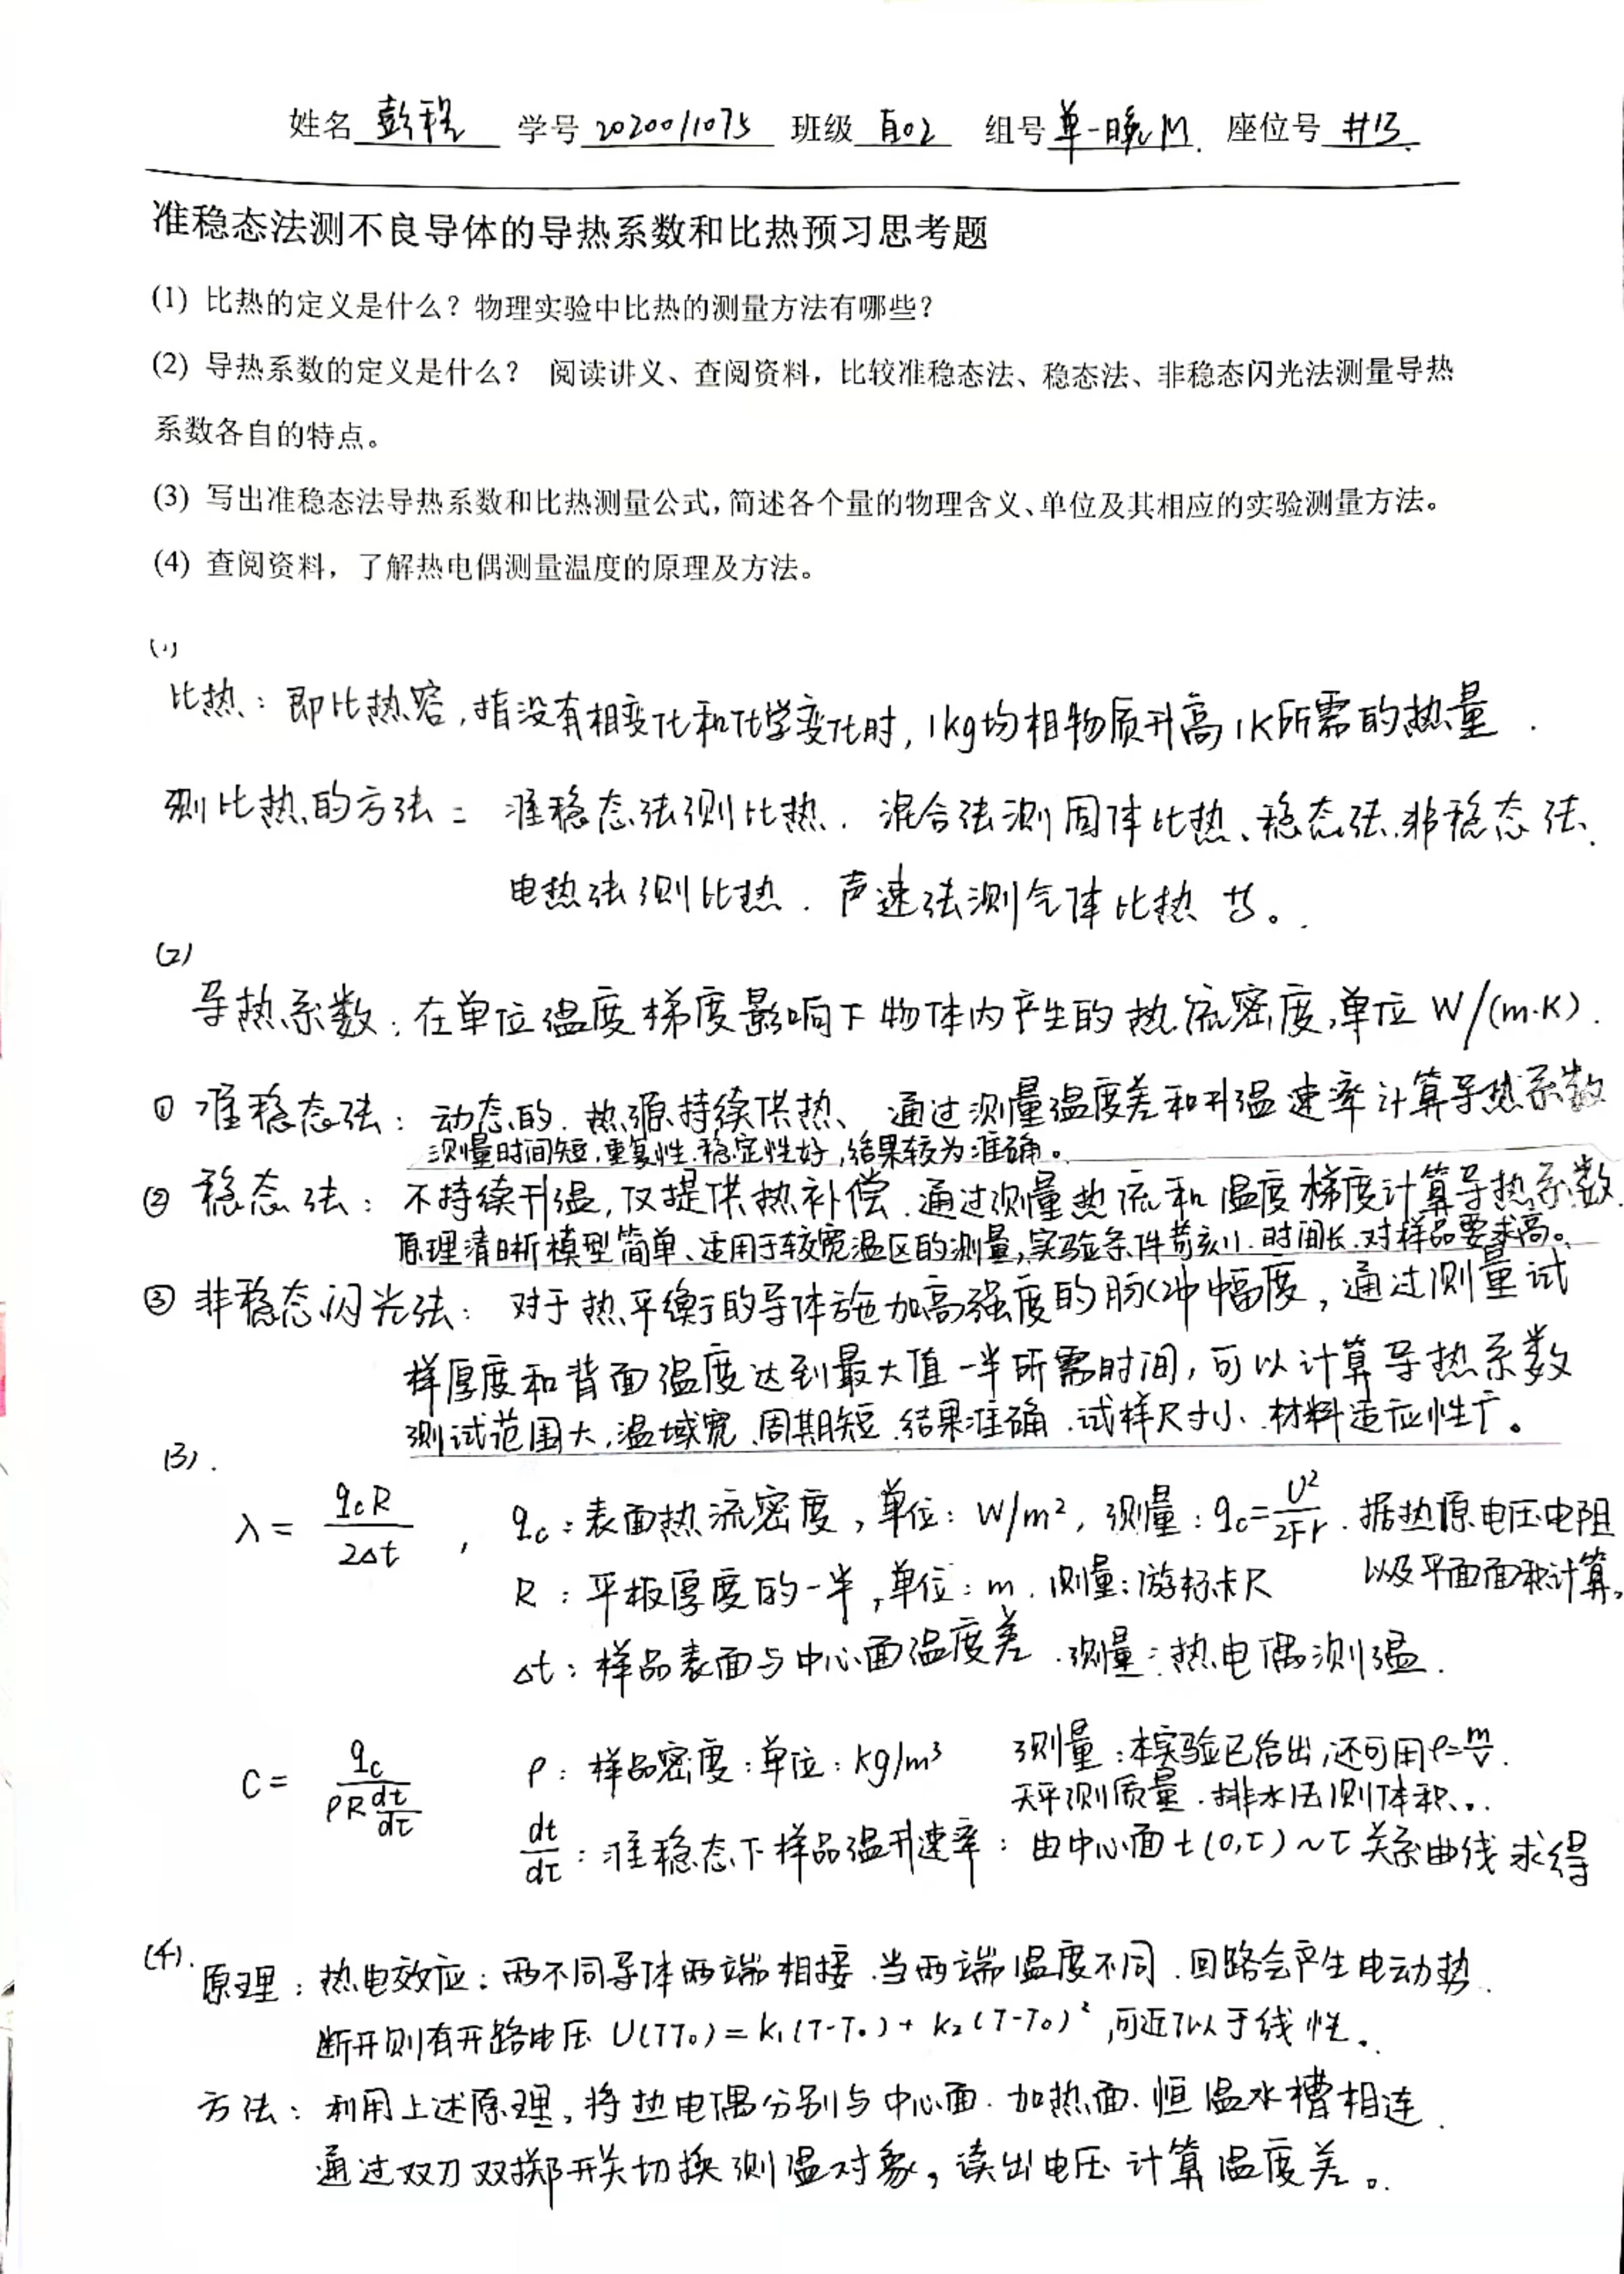 姓名 彭程 学号 2020011075 班级 自02 组号 单一晚M. 座位号 #13.
准稳态法测不良导体的导热系数和比热预习思考题
(1) 比热的定义是什么？物理实验中比热的测量方法有哪些？
(2) 导热系数的定义是什么？ 阅读讲义、查阅资料，比较准稳态法、稳态法、非稳态闪光法测量导热
系数各自的特点。
(3) 写出准稳态法导热系数和比热测量公式，简述各个量的物理含义、单位及其相应的实验测量方法。
(4) 查阅资料，了解热电偶测量温度的原理及方法。
(1)
比热：即比热容，指没有相变化和化学变化时，1kg均相物质升高1K所需的热量．
测比热的方法： 准稳态法测比热．混合法测固体比热、稳态法、非稳态法、
电热法测比热．声速法测气体比热 等。
(2)
导热系数：在单位温度梯度影响下物体内产生的热流密度，单位 W/(m·K)．
① 准稳态法：动态的．热源持续供热、通过测量温度差和升温速率计算导热系数
测量时间短，重复性．稳定性好，结果较为准确。
② 稳态法：不持续升温，仅提供热补偿．通过测量热流和温度梯度计算导热系数．
原理清晰模型简单、适用于较宽温区的测量，实验条件苛刻、时间长．对样品要求高。
③ 非稳态闪光法：对于热平衡的导体施加高强度的脉冲幅度，通过测量试
样厚度和背面温度达到最大值一半所需时间，可以计算导热系数
测试范围大，温域宽、周期短．结果准确．试样尺寸小、材料适应性广。
(3)．
λ = qcR/2Δt ， qc：表面热流密度，单位：W/m²，测量：qc=U²/2Fr．据热源电压电阻
以及平面面积计算。
R：平板厚度的一半，单位：m．测量：游标卡尺
Δt：样品表面与中心面温度差．测量：热电偶测温．
C = qc/(ρR dt/dτ) ρ：样品密度：单位：kg/m³ 测量：本实验已给出，还可用ρ=m/V．
天平测质量．排水法测体积…
dt/dτ：准稳态下样品温升速率：由中心面t(0,τ)~τ关系曲线求得
(4)．
原理：热电效应：两不同导体两端相接．当两端温度不同．回路会产生电动势．
断开则有开路电压 U(TT₀)=k₁(T-T₀)+k₂(T-T₀)²，可近似于线性。
方法：利用上述原理，将热电偶分别与中心面．加热面．恒温水槽相连．
通过双刀双掷开关切换测温对象，读出电压计算温度差。